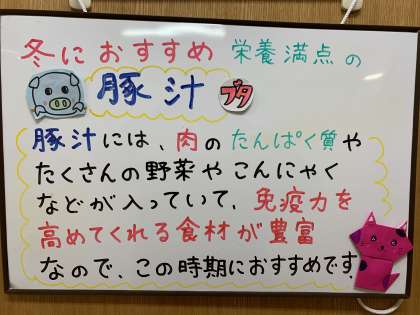 冬におすすめ 栄養満点の
豚汁 ブタ
豚汁には、肉のたんぱく質や
たくさんの野菜やこんにゃく
などが入っていて、免疫力を
高めてくれる食材が豊富
なので、この時期におすすめです